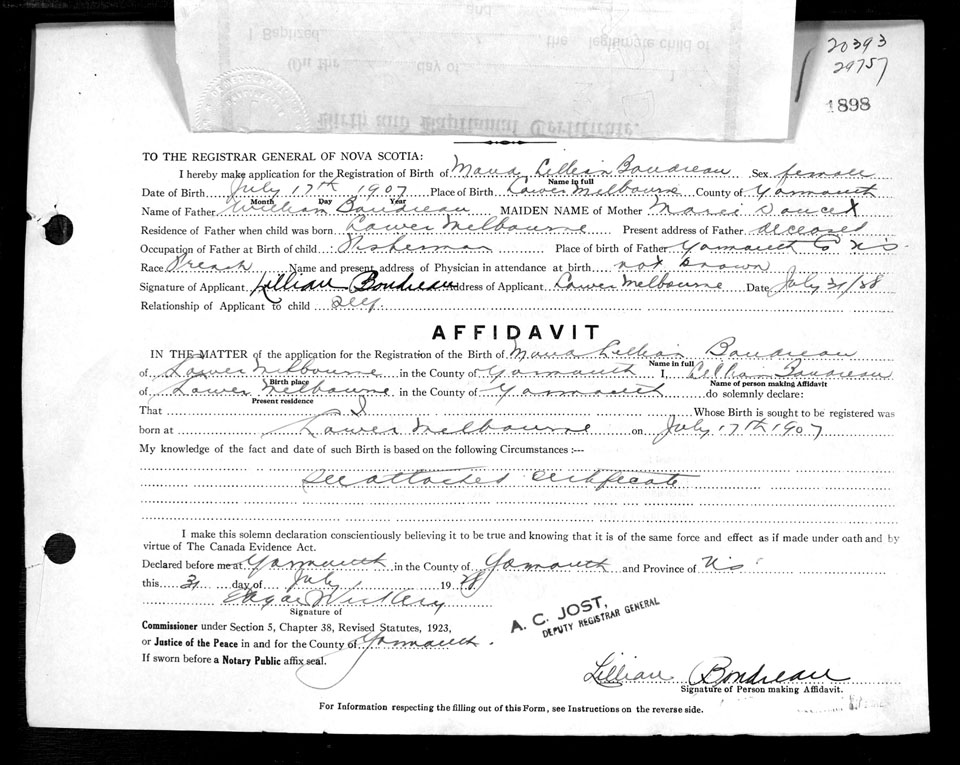 20393
29757
1898
and
I Baptized, the legitimate child of
(On the day of
Birth and Baptismal Certificate.
TO THE REGISTRAR GENERAL OF NOVA SCOTIA:
I hereby make application for the Registration of Birth of Maud Lillian Boudreau Sex female
Name in full
Date of Birth July 17th 1907 Place of Birth Lower Melbourne County of Yarmouth
Month Day Year
Name of Father William Boudreau MAIDEN NAME of Mother Marie Doucet
Residence of Father when child was born Lower Melbourne Present address of Father deceased
Occupation of Father at Birth of child Fisherman Place of birth of Father Yarmouth Co N.S.
Race French Name and present address of Physician in attendance at birth not known
Signature of Applicant Lillian Boudreau Address of Applicant Lower Melbourne Date July 31/28
Relationship of Applicant to child self.
AFFIDAVIT
IN THE MATTER of the application for the Registration of the Birth of Maud Lillian Boudreau
Name in full
of Lower Melbourne in the County of Yarmouth I, Lillian Boudreau
Birth place Name of person making Affidavit
of Lower Melbourne in the County of Yarmouth do solemnly declare:
Present residence
That I Whose Birth is sought to be registered was
born at Lower Melbourne on July 17th 1907
My knowledge of the fact and date of such Birth is based on the following Circumstances :---
See attached certificate
I make this solemn declaration conscientiously believing it to be true and knowing that it is of the same force and effect as if made under oath and by
virtue of The Canada Evidence Act.
Declared before me at Yarmouth in the County of Yarmouth and Province of N.S.
this 31 day of July 1928
Edgar
Signature of
Commissioner under Section 5, Chapter 38, Revised Statutes, 1923,
or Justice of the Peace in and for the County of Yarmouth.
If sworn before a Notary Public affix seal.
A. C. JOST,
DEPUTY REGISTRAR GENERAL
Lillian Boudreau
Signature of Person making Affidavit.
For Information respecting the filling out of this Form, see Instructions on the reverse side.